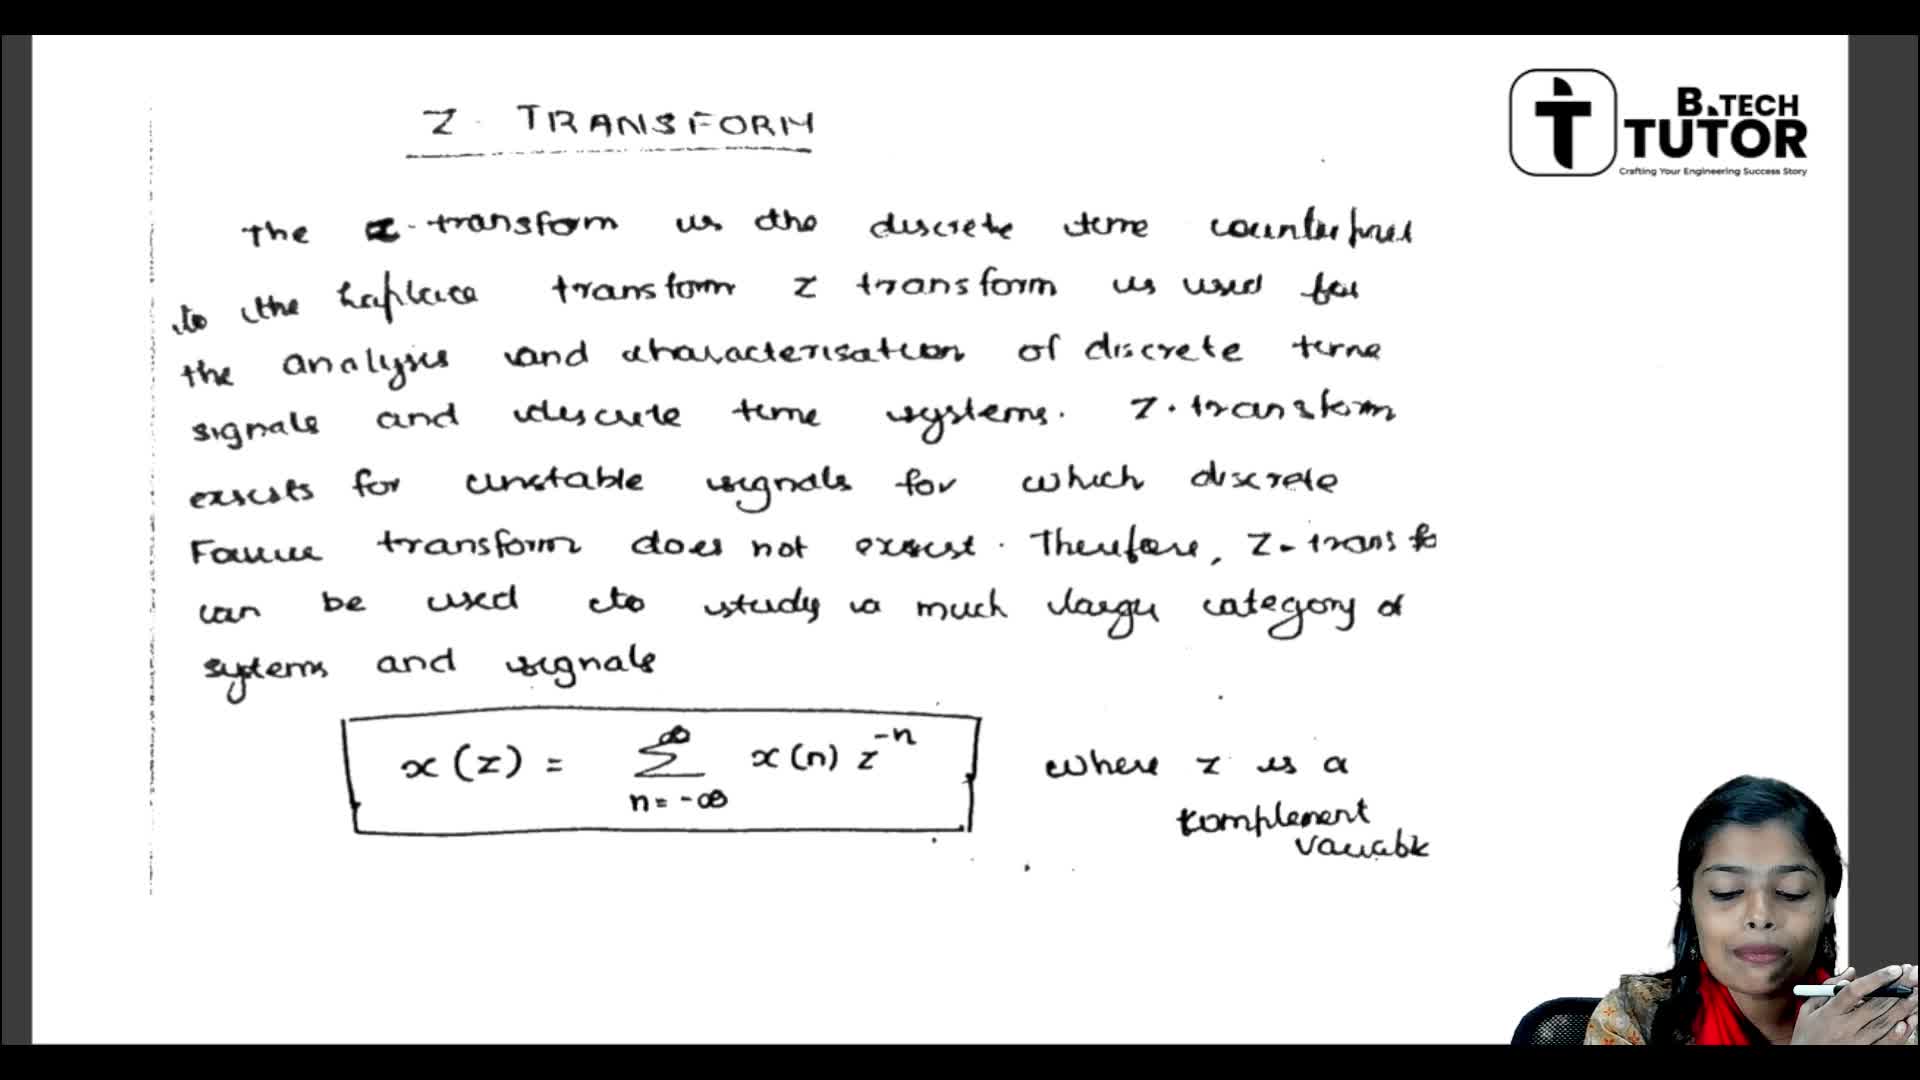 Z - TRANSFORM
B.TECH
TUTOR
Crafting Your Engineering Success Story
The z-transform is the discrete time counterpart
to the Laplace transform Z transform is used for
the analysis and characterisation of discrete time
signals and discrete time systems. Z-transform
exists for unstable signals for which discrete
Fourier transform does not exist. Therefore, Z-transfo
can be used to study a much larger category of
systems and signals
x(z) = ∑ x(n) z⁻ⁿ where z is a
∞
n = -∞
complement
variable